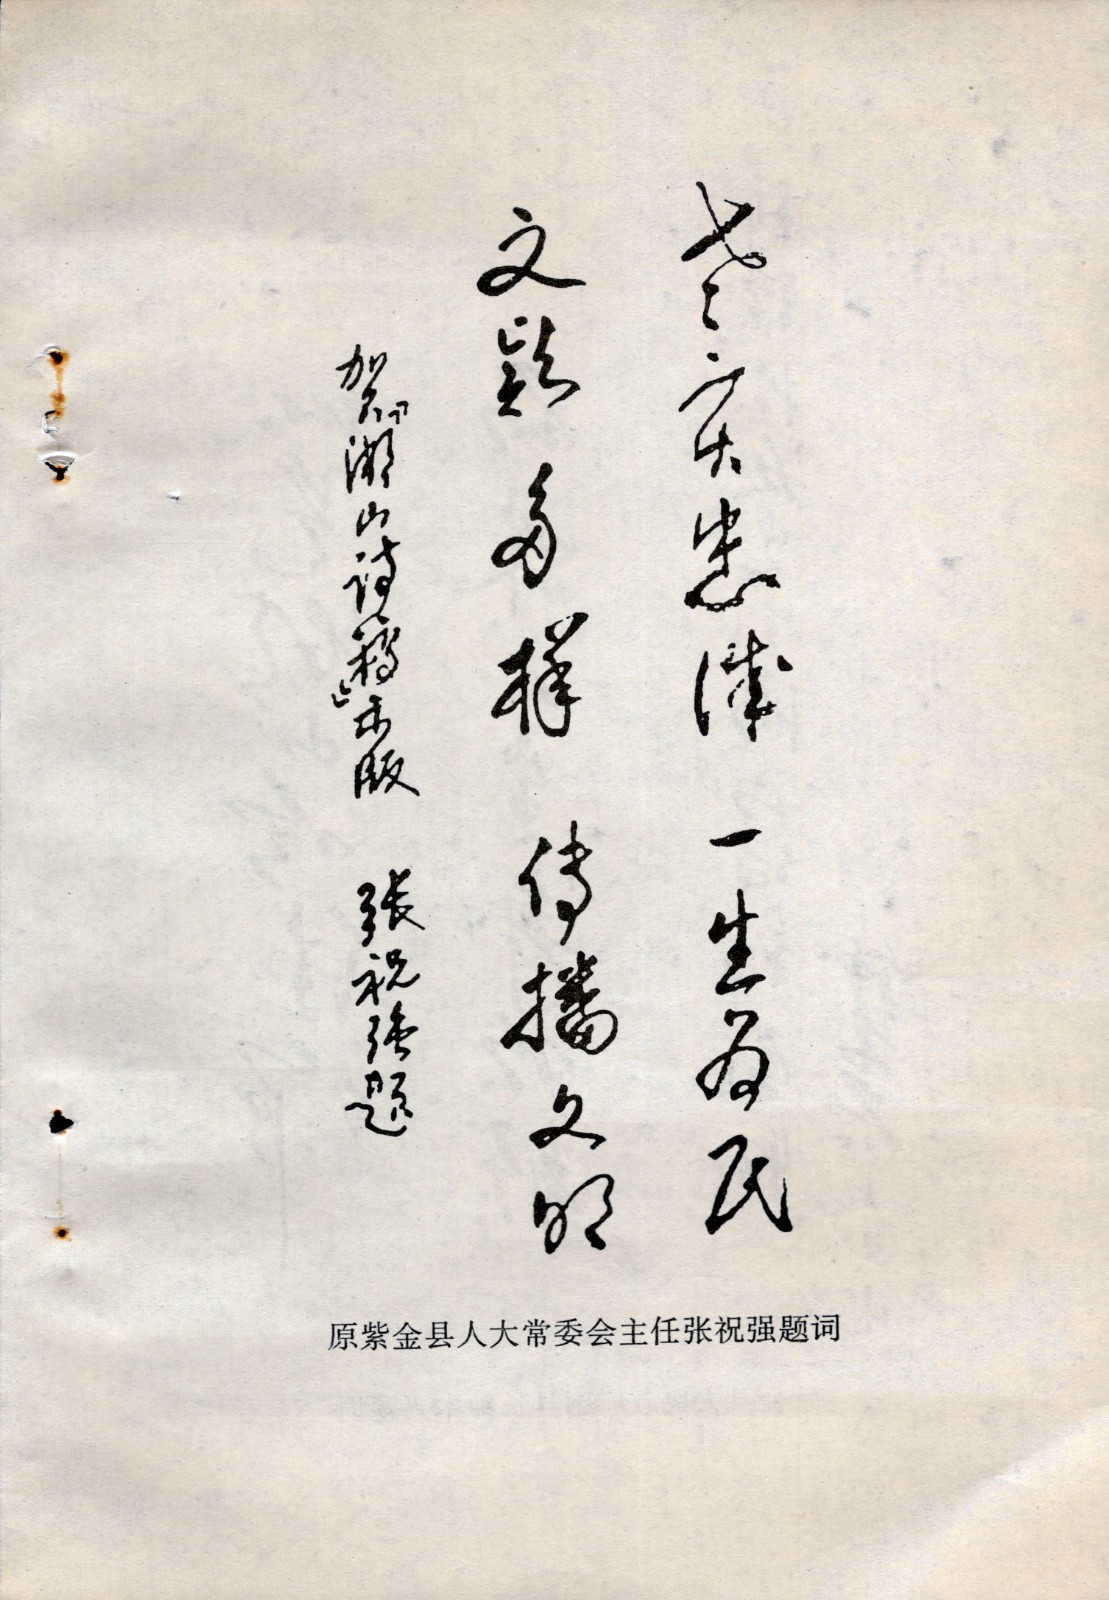 忠诚 一生为民
文多样 传播文明
贺『湖山诗稿』出版 張祝强题
原紫金县人大常委会主任张祝强题词